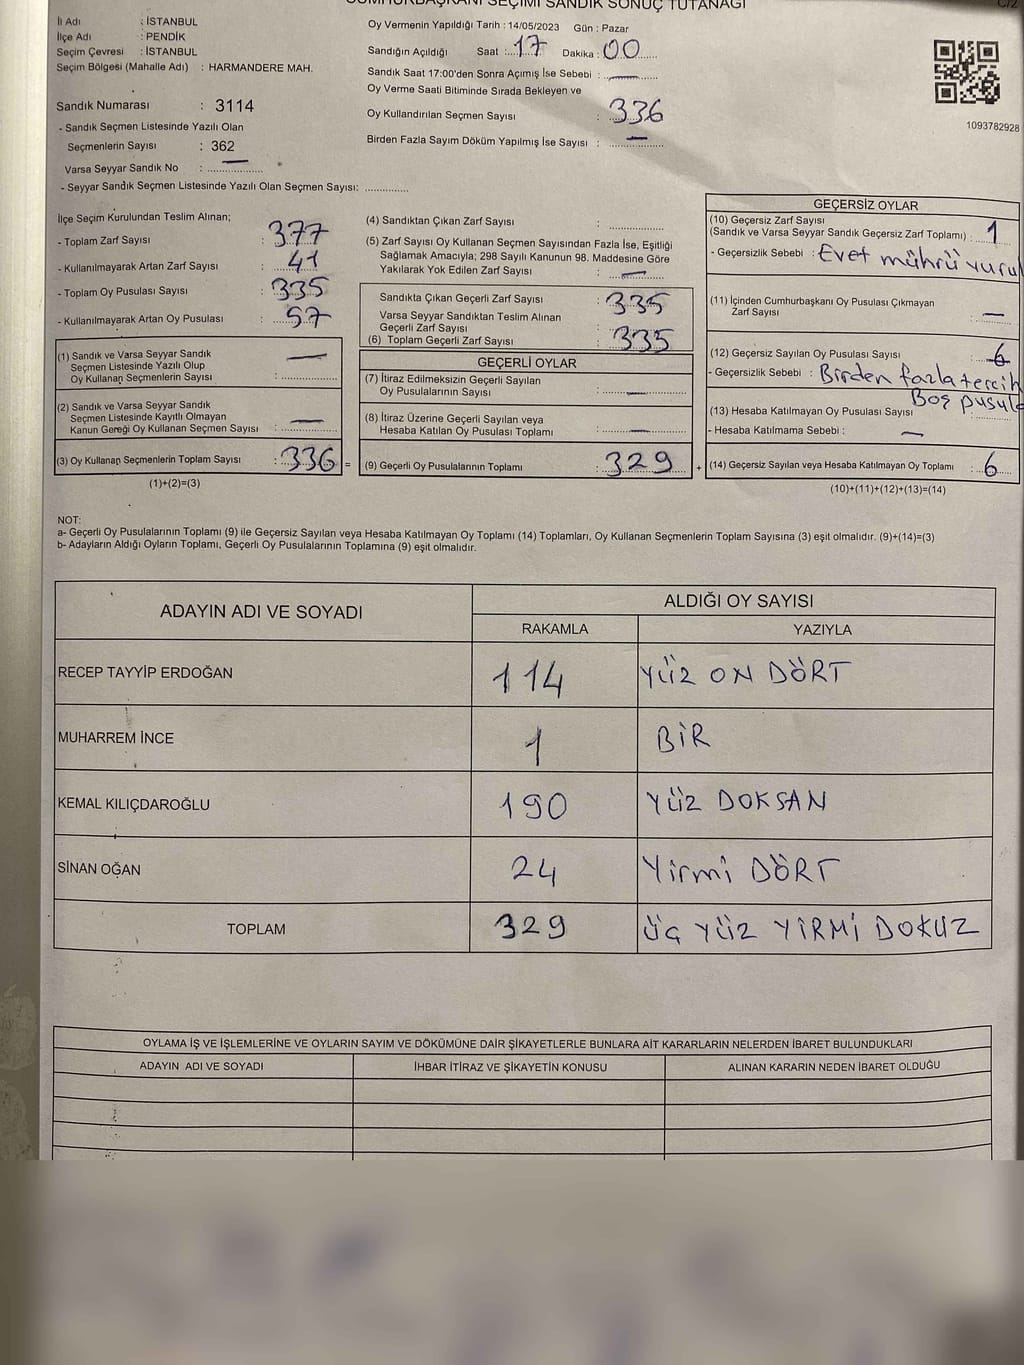 CUMHURBAŞKANI SEÇİMİ SANDIK SONUÇ TUTANAĞI
C/2
İl Adı : İSTANBUL
İlçe Adı : PENDİK
Seçim Çevresi : İSTANBUL
Seçim Bölgesi (Mahalle Adı) : HARMANDERE MAH.
Sandık Numarası : 3114
- Sandık Seçmen Listesinde Yazılı Olan
Seçmenlerin Sayısı : 362
Varsa Seyyar Sandık No : —
- Seyyar Sandık Seçmen Listesinde Yazılı Olan Seçmen Sayısı: ..............
Oy Vermenin Yapıldığı Tarih : 14/05/2023 Gün : Pazar
Sandığın Açıldığı Saat : 17 Dakika : 00
Sandık Saat 17:00'den Sonra Açımış İse Sebebi : —
Oy Verme Saati Bitiminde Sırada Bekleyen ve
Oy Kullandırılan Seçmen Sayısı : 336
Birden Fazla Sayım Döküm Yapılmış İse Sayısı : —
1093782928
İlçe Seçim Kurulundan Teslim Alınan;
- Toplam Zarf Sayısı : 377
- Kullanılmayarak Artan Zarf Sayısı : 41
- Toplam Oy Pusulası Sayısı : 335
- Kullanılmayarak Artan Oy Pusulası : 57
(1) Sandık ve Varsa Seyyar Sandık
Seçmen Listesinde Yazılı Olup
Oy Kullanan Seçmenlerin Sayısı : —
(2) Sandık ve Varsa Seyyar Sandık
Seçmen Listesinde Kayıtlı Olmayan
Kanun Gereği Oy Kullanan Seçmen Sayısı : —
(3) Oy Kullanan Seçmenlerin Toplam Sayısı : 336 =
(1)+(2)=(3)
(4) Sandıktan Çıkan Zarf Sayısı : ..............
(5) Zarf Sayısı Oy Kullanan Seçmen Sayısından Fazla İse, Eşitliği
Sağlamak Amacıyla; 298 Sayılı Kanunun 98. Maddesine Göre
Yakılarak Yok Edilen Zarf Sayısı : —
Sandıkta Çıkan Geçerli Zarf Sayısı : 335
Varsa Seyyar Sandıktan Teslim Alınan
Geçerli Zarf Sayısı :
(6) Toplam Geçerli Zarf Sayısı : 335
GEÇERLİ OYLAR
(7) İtiraz Edilmeksizin Geçerli Sayılan
Oy Pusulalarının Sayısı : —
(8) İtiraz Üzerine Geçerli Sayılan veya
Hesaba Katılan Oy Pusulası Toplamı : —
(9) Geçerli Oy Pusulalarının Toplamı : 329 +
GEÇERSİZ OYLAR
(10) Geçersiz Zarf Sayısı
(Sandık ve Varsa Seyyar Sandık Geçersiz Zarf Toplamı) : 1
- Geçersizlik Sebebi : Evet mührü vurul
(11) İçinden Cumhurbaşkanı Oy Pusulası Çıkmayan
Zarf Sayısı : —
(12) Geçersiz Sayılan Oy Pusulası Sayısı : 6
- Geçersizlik Sebebi : Birden fazla tercih
Boş pusula
(13) Hesaba Katılmayan Oy Pusulası Sayısı
- Hesaba Katılmama Sebebi : —
(14) Geçersiz Sayılan veya Hesaba Katılmayan Oy Toplamı : 6
(10)+(11)+(12)+(13)=(14)
NOT:
a- Geçerli Oy Pusulalarının Toplamı (9) ile Geçersiz Sayılan veya Hesaba Katılmayan Oy Toplamı (14) Toplamları, Oy Kullanan Seçmenlerin Toplam Sayısına (3) eşit olmalıdır. (9)+(14)=(3)
b- Adayların Aldığı Oyların Toplamı, Geçerli Oy Pusulalarının Toplamına (9) eşit olmalıdır.
ADAYIN ADI VE SOYADI
ALDIĞI OY SAYISI
RAKAMLA YAZIYLA
RECEP TAYYİP ERDOĞAN 114 YÜZ ON DÖRT
MUHARREM İNCE 1 BİR
KEMAL KILIÇDAROĞLU 190 YÜZ DOKSAN
SİNAN OĞAN 24 Yirmi DÖRT
TOPLAM 329 ÜÇ YÜZ YİRMİ DOKUZ
OYLAMA İŞ VE İŞLEMLERİNE VE OYLARIN SAYIM VE DÖKÜMÜNE DAİR ŞİKAYETLERLE BUNLARA AİT KARARLARIN NELERDEN İBARET BULUNDUKLARI
ADAYIN ADI VE SOYADI İHBAR İTİRAZ VE ŞİKAYETİN KONUSU ALINAN KARARIN NEDEN İBARET OLDUĞU